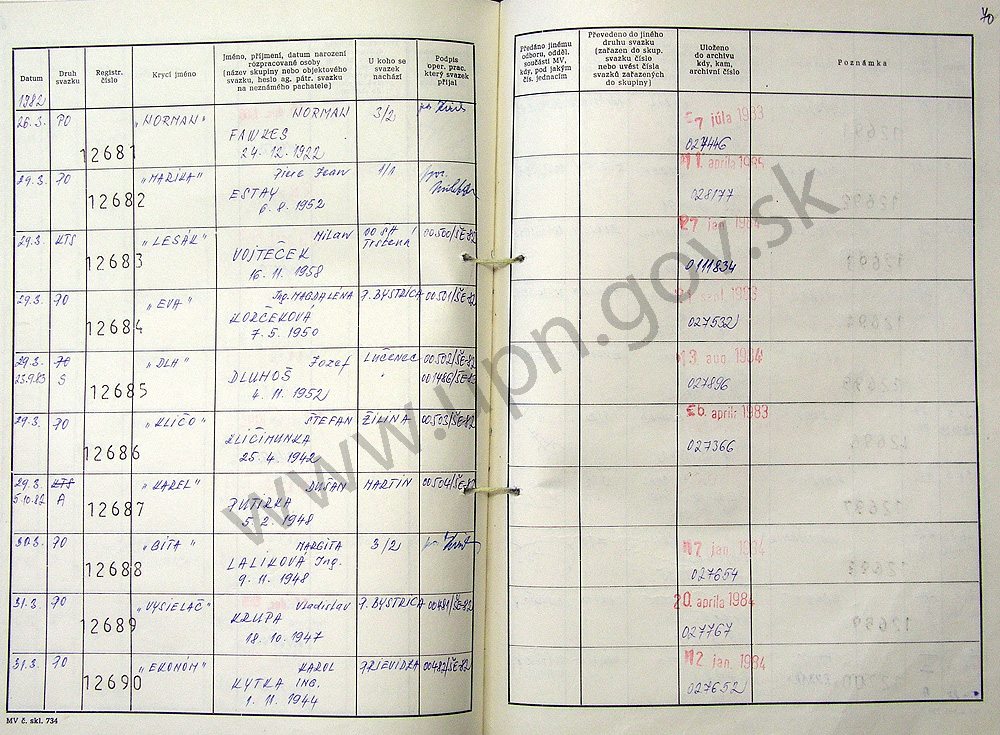 Datum
Druh svazku
Registr. číslo
Krycí jméno
Jméno, příjmení, datum narození rozpracované osoby (název skupiny nebo objektového svazku, heslo ag. pátr. svazku na neznámého pachatele)
U koho se svazek nachází
Podpis oper. prac. který svazek přijal
Předáno jinému odboru, odděl. součásti MV, kdy, pod jakým čís. jednacím
Převedeno do jiného druhu svazku (zařazen do skup. svazku číslo nebo uvést čísla svazků zařazených do skupiny)
Uloženo do archivu kdy, kam, archivní číslo
Poznámka
1982
26.3. PO 12681 „NORMAN" NORMAN 3/2
FAWKES
24. 12. 1922
7 júla 1983
027446
29.3. PO 12682 „MARIKA" Jean 1/1
ESTAY
6. 8. 1952
11. apríla 1984
028177
29.3. KTS 12683 „LESÁK" Milan OO SH Trstená 00500/ŠE-82
VOJTEČEK
16. 11. 1958
27 jan. 1984
0111834
29.3. PO 12684 „EVA" Ing. MAGDALÉNA P. BYSTRICA 00501/ŠE-82
KORČEKOVÁ
7. 5. 1950
sept. 1983
027532
29.3. PO 12685 „DLH" Jozef LUČENEC 00502/ŠE-82
25.9.83 S DLUHOŠ " 001486/ŠE-83
4. 11. 1952
13. aug. 1984
027896
29.3. PO 12686 „KLIČO" ŠTEFAN ŽILINA 00503/ŠE-82
KLIČIMUNKA
25. 4. 1942
26. apríla 1983
027366
29.3. KTS 12687 „KAREL" DUŠAN MARTIN 00504/ŠE-82
5.10.82 A PUTIRKA
5. 2. 1948
30.3. PO 12688 „GITA" MARGITA 3/2
LALIKOVÁ Ing.
9. 11. 1948
17 jan. 1984
027654
31.3. PO 12689 „VYSIELAČ" Vladislav P. BYSTRICA 00481/ŠE-82
KRUPA
18. 10. 1947
20. apríla 1984
027767
31.3. PO 12690 „EKONÓM" KAROL PRIEVIDZA 00482/ŠE-82
KYTKA ING.
1. 11. 1944
12 jan. 1984
027652
MV č. skl. 734
www.upn.gov.sk